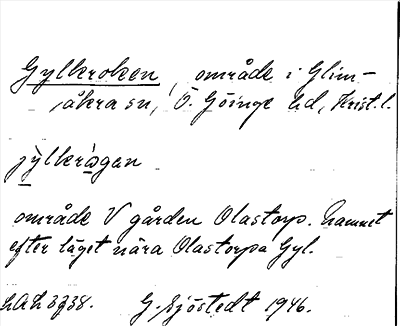 Gylkroken, område i Glim-
åkra sn, Ö. Göinge hd, Krist. l.
område V gården Olastorp. Namnet
efter läget nära Olastorpa Gyl.
G. Sjöstedt 1946.